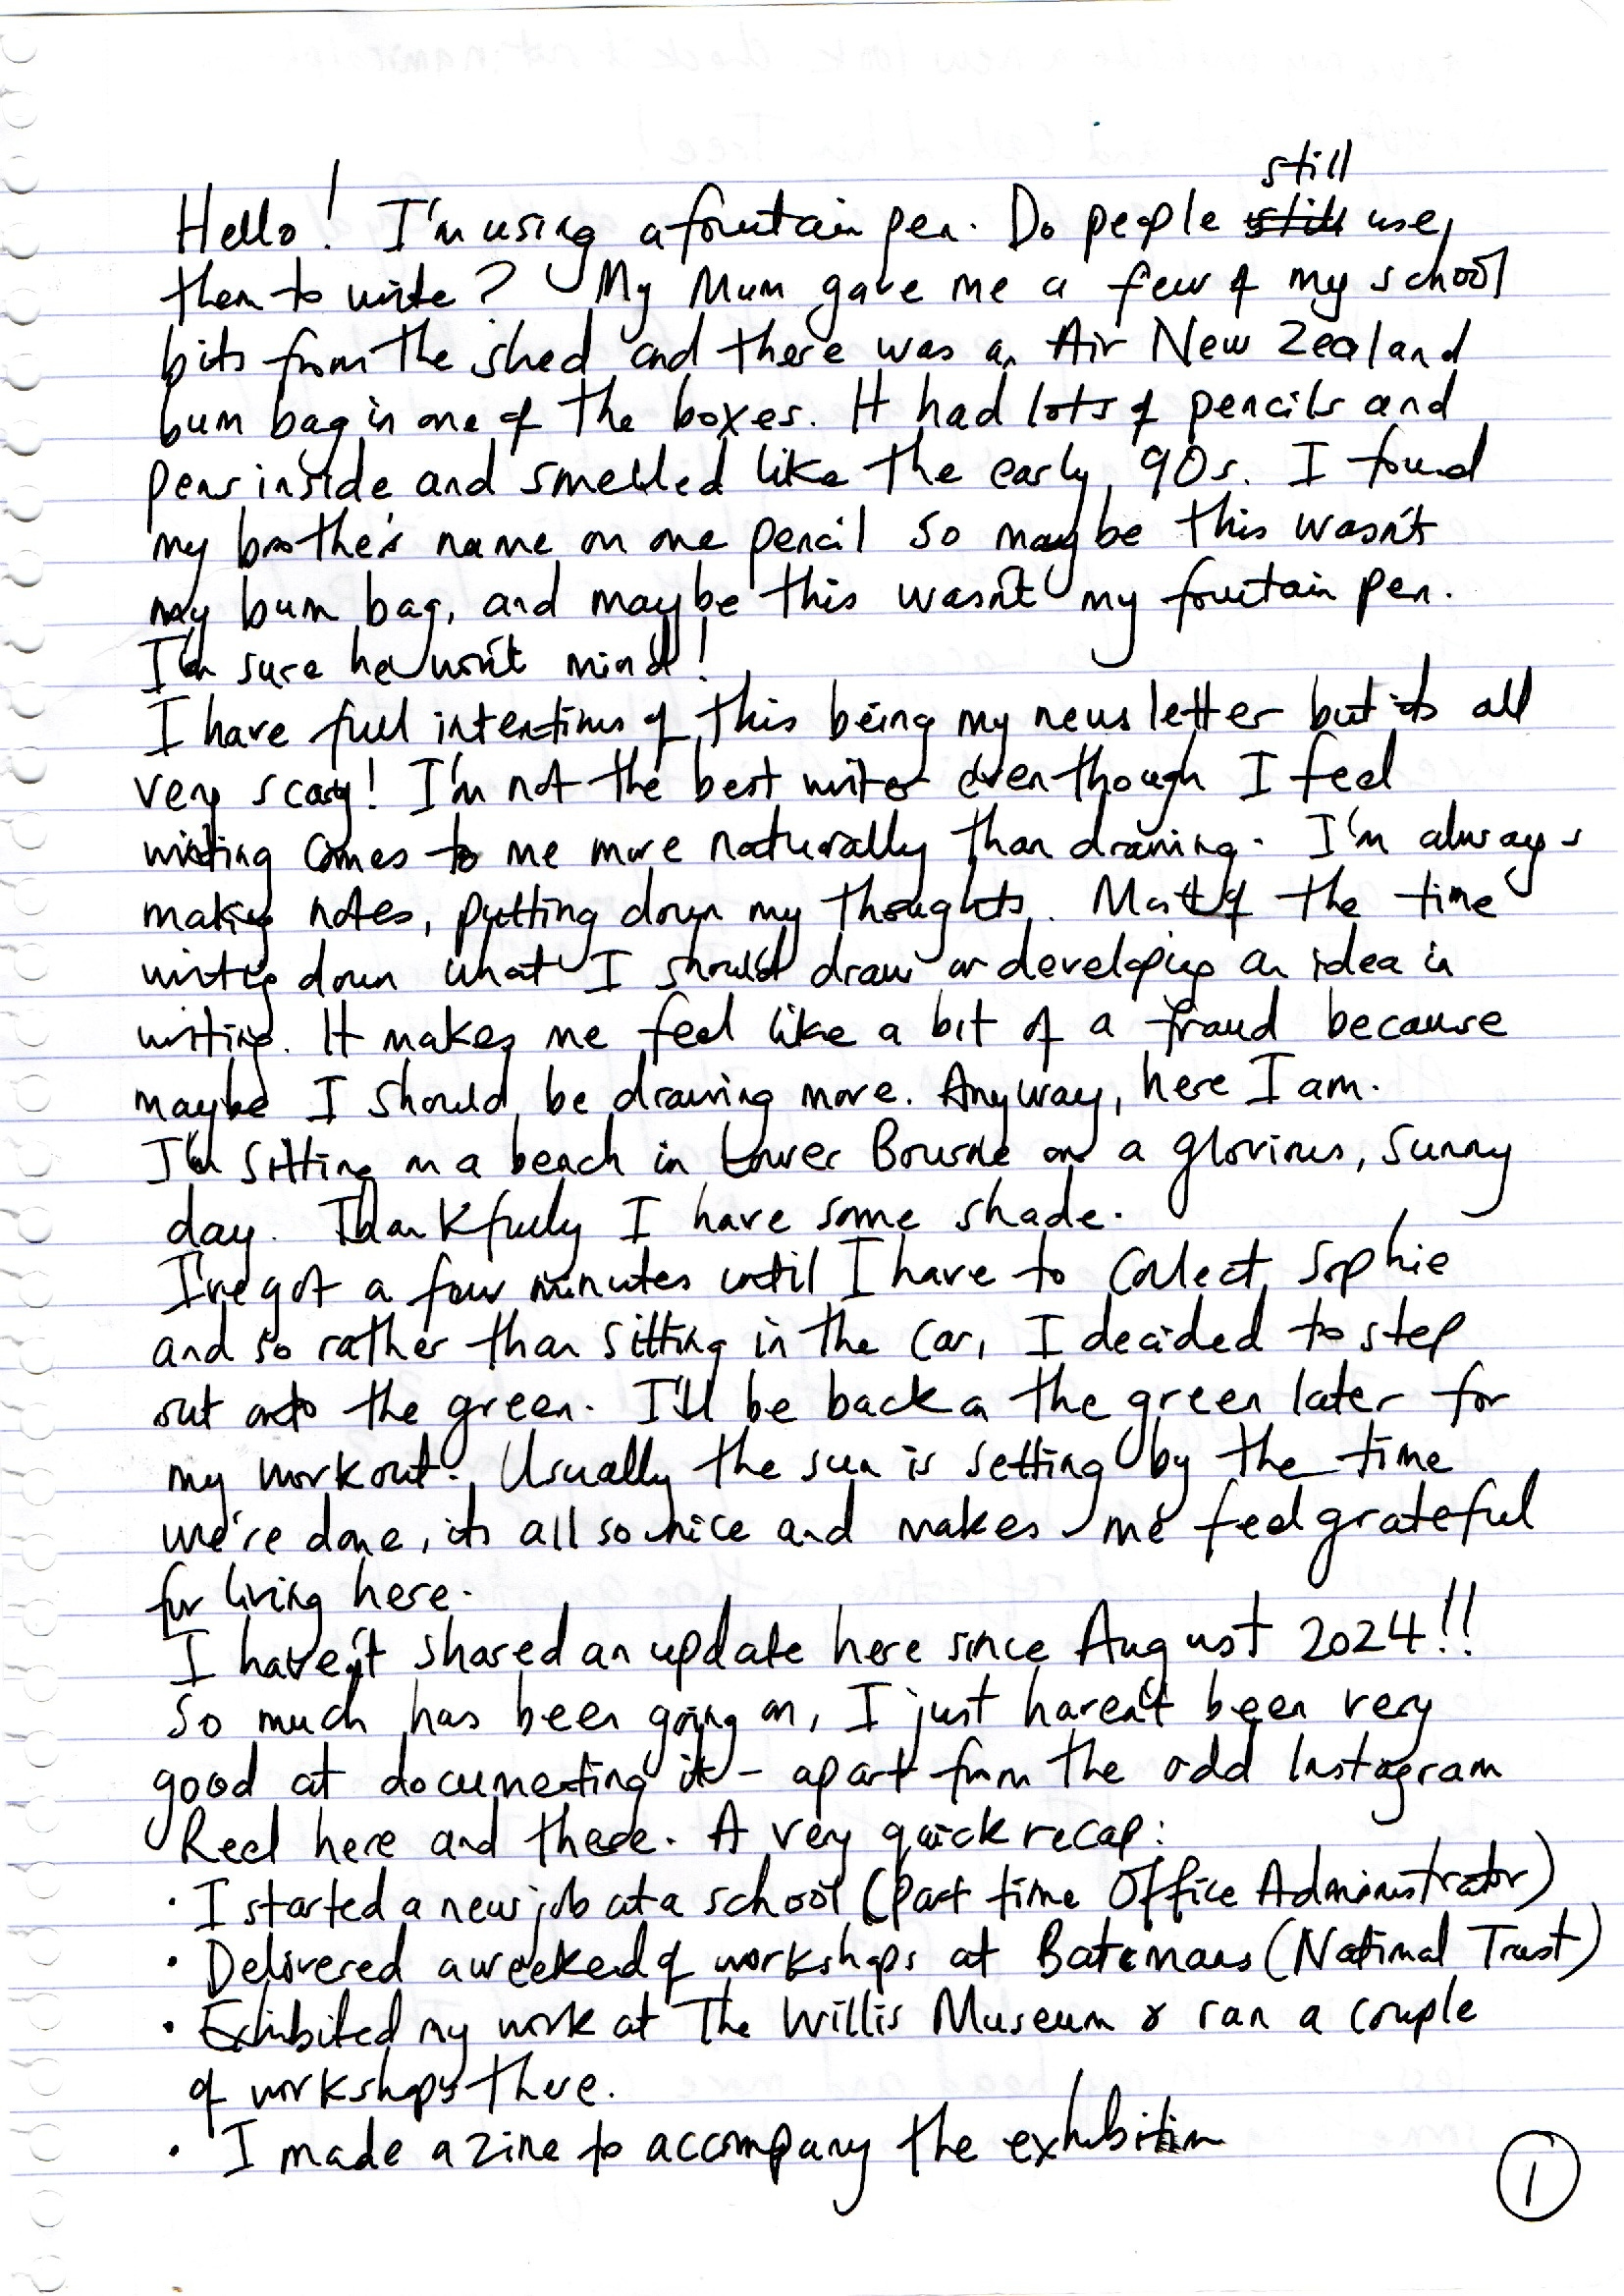 still
Hello! I'm using a fountain pen. Do people still use
them to write? My Mum gave me a few of my school
bits from the shed and there was an Air New Zealand
bum bag in one of the boxes. It had lots of pencils and
pens inside and smelled like the early 90s. I found
my brother's name on one pencil so maybe this wasn't
my bum bag, and maybe this wasn't my fountain pen.
I'm sure he won't mind!
I have full intentions of this being my newsletter but its all
very scary! I'm not the best writer even though I feel
writing comes to me more naturally than drawing. I'm always
making notes, putting down my thoughts. Most of the time
writing down what I should draw or developing an idea in
writing. It makes me feel like a bit of a fraud because
maybe I should be drawing more. Anyway, here I am.
I'm sitting on a bench in Lower Bourne on a glorious, sunny
day. Thankfully I have some shade.
I've got a few minutes until I have to collect Sophie
and so rather than sitting in the car, I decided to step
out onto the green. I'll be back on the green later for
my workout. Usually the sun is setting by the time
we're done, its all so nice and makes me feel grateful
for living here.
I haven't shared an update here since August 2024!!
So much has been going on, I just haven't been very
good at documenting it - apart from the odd Instagram
Reel here and there. A very quick recap:
· I started a new job at a school (Part time Office Administrator)
· Delivered a weekend of workshops at Batemans (National Trust)
· Exhibited my work at The Willis Museum & ran a couple
of workshops there.
· I made a zine to accompany the exhibition
1